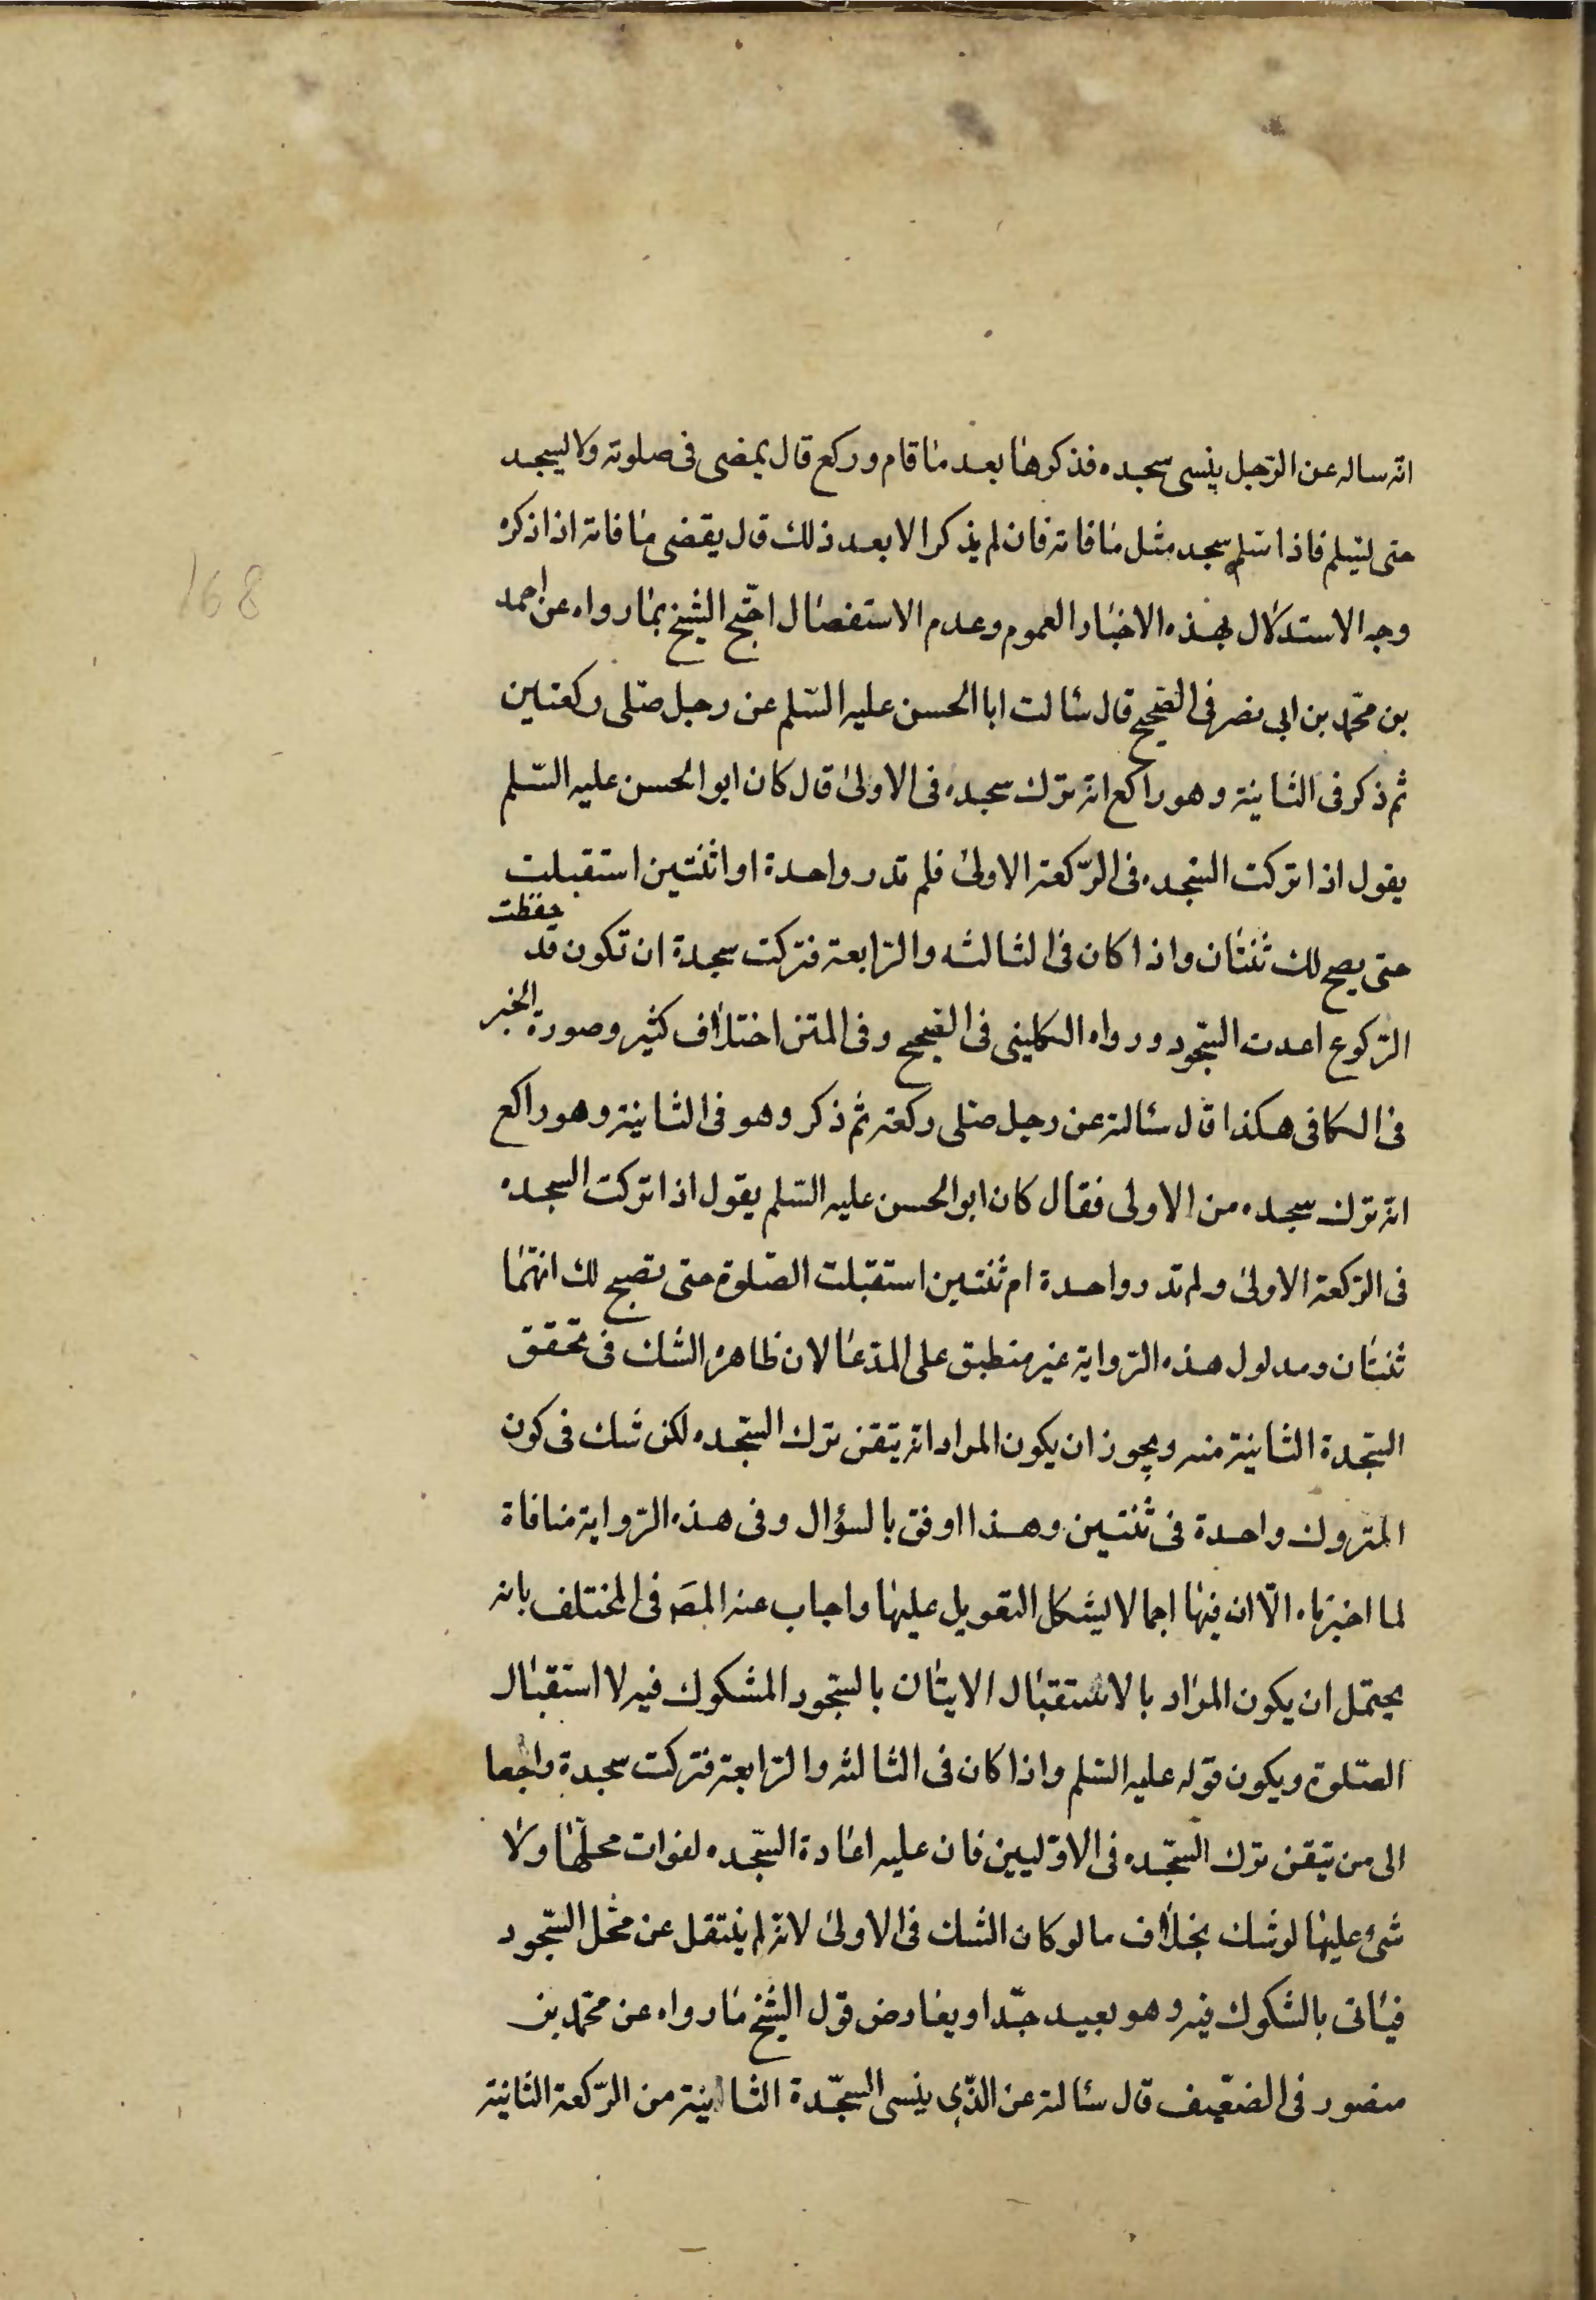 168
انه ساله عن الرّجل ينسى سجده فذكرها بعد ما قام وركع قال يمضى فى صلوته ولا يسجد
حتى يسلم فاذا سلم سجد مثل ما فاته فان لم يذكر الا بعد ذلك قال يقضى ما فاته اذا ذكره
وجه الاستدلال بهذه الاخبار العموم وعدم الاستفصال احتّج الشيخ بما رواه عن احمد
بن محمّد بن ابى نصر فى الصّحيح قال سالت ابا الحسن عليه السّلم عن رجل صلّى ركعتين
ثم ذكر فى الثانية وهو راكع انه ترك سجده فى الاولى قال كان ابو الحسن عليه السّلم
يقول اذا تركت السّجده فى الرّكعة الاولى فلم تدر واحدة او اثنتين استقبلت
حتى يصح لك ثنتان واذا كان فى الثالثه والرّابعة فتركت سجدة ان تكون قد حفظت
الرّكوع اعدت السّجود ورواه الكلينى فى الصّحيح وفى المتن اختلاف كثير وصورة الخبر
فى الكافى هكذا قال سالته عن رجل صلّى ركعة ثم ذكر وهو فى الثانية وهو راكع
انه ترك سجده من الاولى فقال كان ابو الحسن عليه السّلم يقول اذا تركت السجده
فى الرّكعة الاولى ولم تدر واحدة ام ثنتين استقبلت الصّلوة حتى تصح لك انهما
ثنتان ومدلول هذه الرّواية غير منطبق على المدّعا لان ظاهره الشك فى تحقق
السّجدة الثانية منه ويجوز ان يكون المراد انه يتقن ترك السّجده لكن شك فى كون
المتروك واحدة فى ثنتين وهذا اوفق بالسؤال وفى هذه الرّواية منافاة
لما اخبرناه الّا ان فيها اجمالا يشكل التعويل عليها واجاب عنه المصَ فى المختلف بانه
يحتمل ان يكون المراد بالاستقبال الايتان بالسّجود المشكوك فيه لا استقبال
الصّلوة ويكون قوله عليه السّلم واذا كان فى الثالثه والرّابعة فتركت سجدة راجعا
الى من تيقن ترك السّجده فى الاوّليين فان عليه اعادة السّجده لفوات محلّها ولا
شئ عليها لو شك بخلاف ما لو كان الشك فى الاولى لانه لم ينتقل عن محل السّجود
فياتى بالشكوك فيه وهو بعيد جدّا ويعارض قول الشيخ ما رواه عن محمّد بن
منصور فى الضعّيف قال سالته عن الذّى ينسى السجّدة الثانية من الرّكعة الثانية